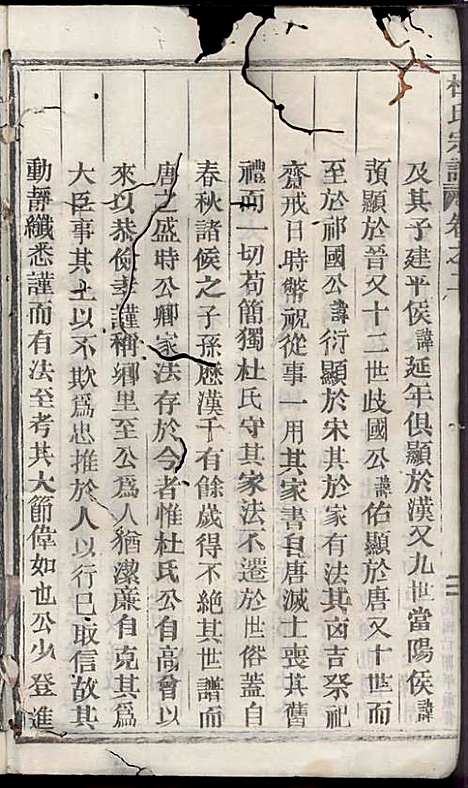 杜氏宗譜 卷之二
及其子建平侯諱延年俱顯於漢又九世當陽侯諱
預顯於晉又十二世歧國公諱佑顯於唐又十世而
至於祁國公諱衍顯於宋其於家有法其凶吉祭祀
齋戒日時幣祝從事一用其家書自唐滅士喪其舊
禮而一切苟簡獨杜氏守其家法不遷於世俗蓋自
春秋諸侯之子孫歷漢千有餘歲得不絶其世譜而
唐之盛時公卿家法存於今者惟杜氏公自高曾以
來以恭儉孝謹稱鄉里至公爲人猶潔廉自克其爲
大臣事其上以不欺爲忠推於人以行巳取信故其
動靜纖悉謹而有法至考其大節偉如也公少登進